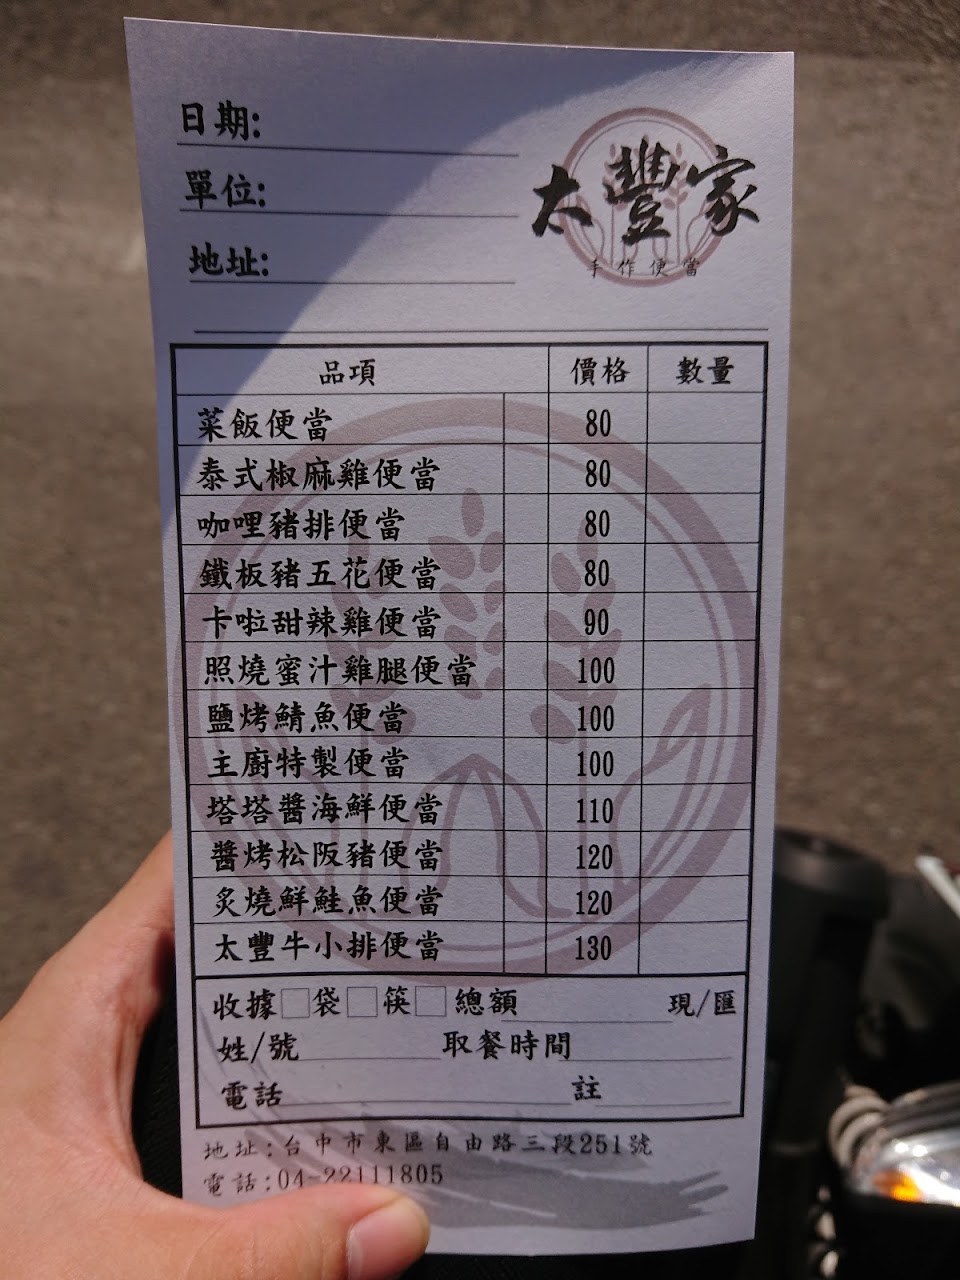 日期:
單位:
地址:
太豐家
手作便當
品項 價格 數量
菜飯便當 80
泰式椒麻雞便當 80
咖哩豬排便當 80
鐵板豬五花便當 80
卡啦甜辣雞便當 90
照燒蜜汁雞腿便當 100
鹽烤鯖魚便當 100
主廚特製便當 100
塔塔醬海鮮便當 110
醬烤松阪豬便當 120
炙燒鮮鮭魚便當 120
太豐牛小排便當 130
收據□袋□筷□總額 現/匯
姓/號 取餐時間
電話 註
地址:台中市東區自由路三段251號
電話:04-22111805